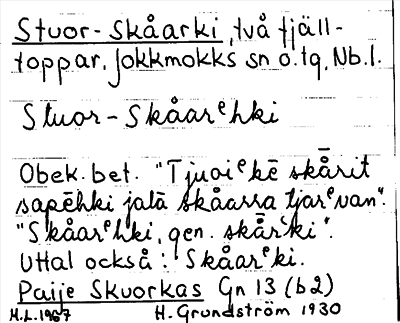 Stuor-Skåarki, två fjäll-
toppar, Jokkmokks sn o. tg, Nb. l.
Stuor-Skåarᵉhki
Obek. bet. "Tjuoiᵉkē skårit
sapēhki jalā skåarra tjarᵉvan".
"Skåarᵉhki, gen. skārᵉki".
Uttal också: Skåarᵉki.
Paije Skuorkas Gn 13 (b2)
H.L. 1967 H. Grundström 1930